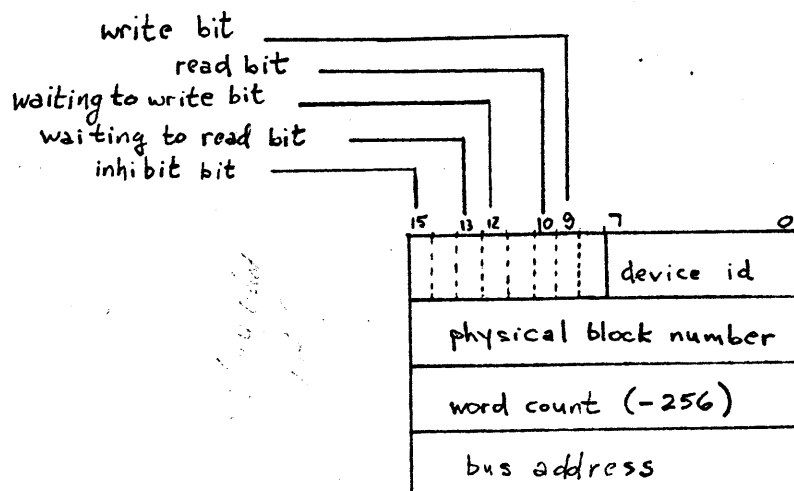 write bit
read bit
waiting to write bit
waiting to read bit
inhibit bit
15 13 12 10 9 7 0
device id
physical block number
word count (-256)
bus address